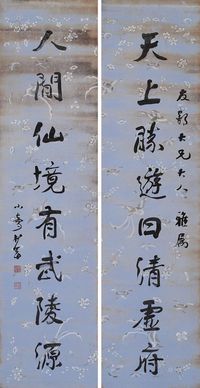 天上勝遊曰清虛府
友郡大兄大人 雅屬
人間仙境有武陵源